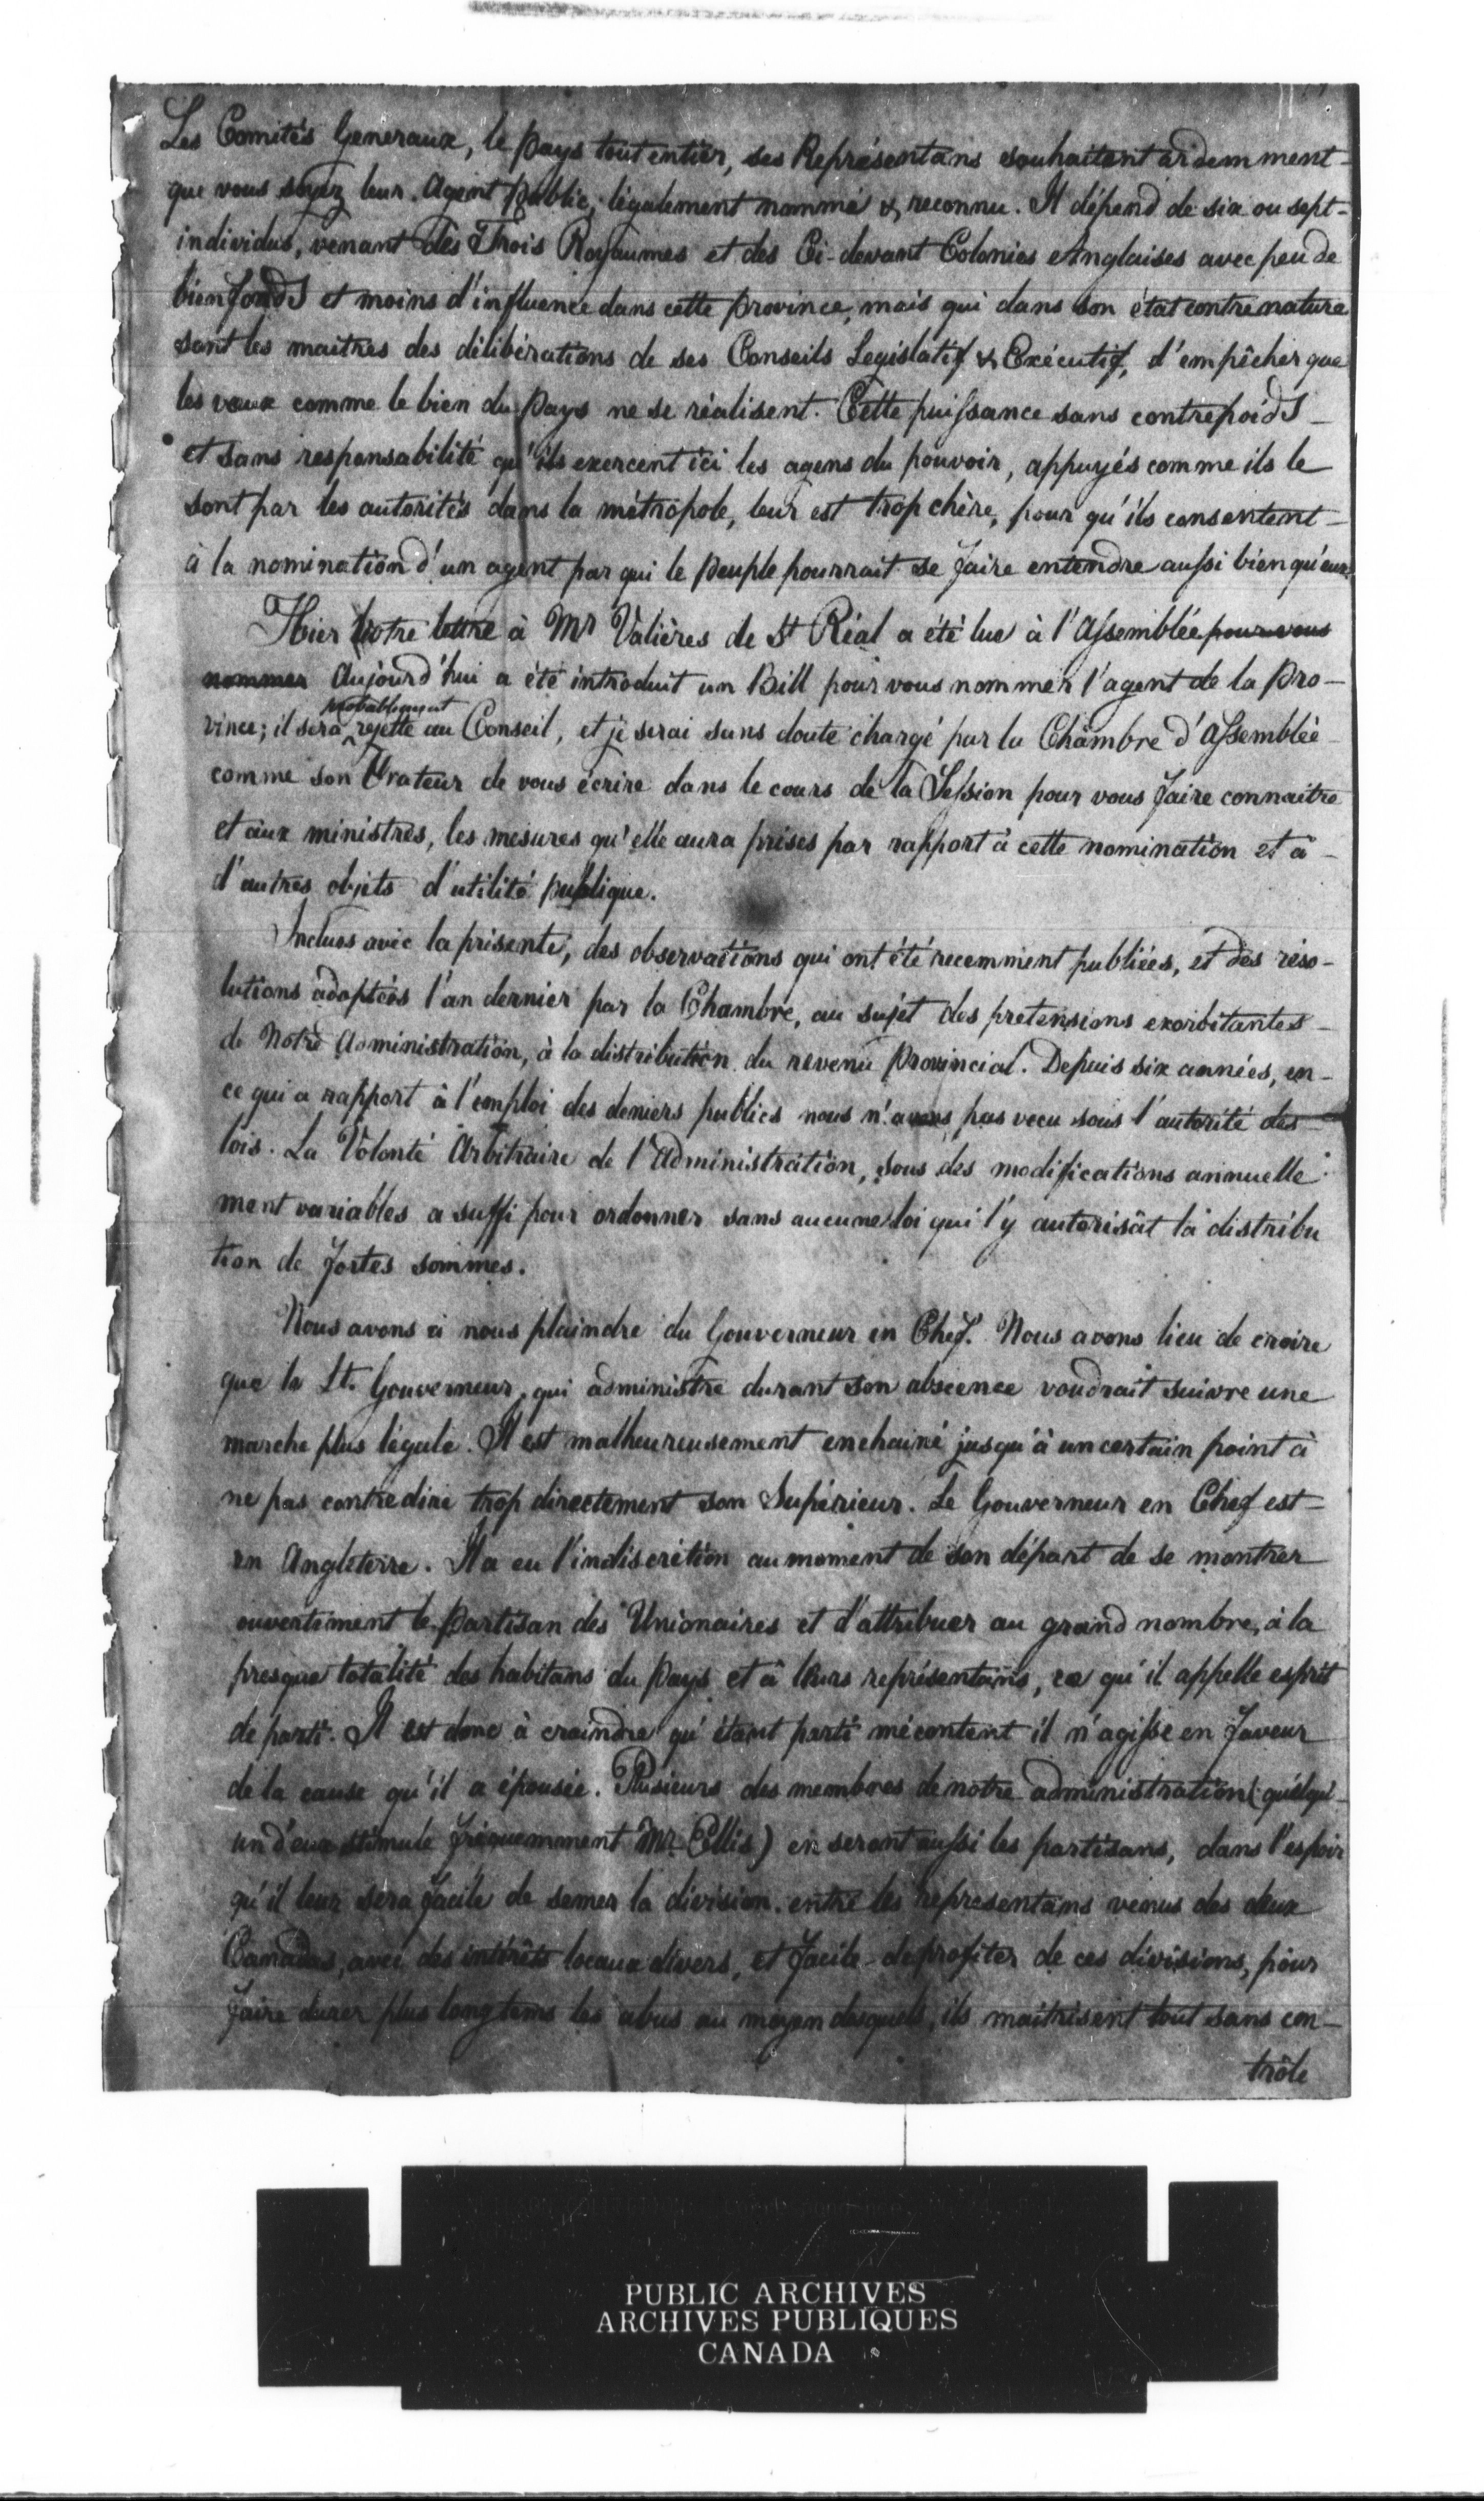 Les Comités Generaux, le pays tout entier, ses Représentans souhaitent ardemment
que vous soyez leur Agent public, légalement nommé & reconnu. Il dépend de six ou sept
individus, venant des Trois Royaumes et des Ci-devant Colonies Anglaises avec peu de
bienfonds et moins d'influence dans cette province, mais qui dans son état contre nature
sont les maitres des délibérations de ses Conseils Legislatif & Exécutif, d'empêcher que
les vœux comme le bien du pays ne se réalisent. Cette puissance sans contrepoids
et sans responsabilité qu'ils exercent ici les agens du pouvoir, appuyés comme ils le
sont par les autorités dans la métropole, leur est trop chère, pour qu'ils consentent
à la nomination d'un agent par qui le peuple pourrait se faire entendre aussi bien qu'eux.
Hier Votre lettre à Mr Valières de St Réal a été lue à l'Assemblée pour vous
nommer Aujourd'hui a été introduit un Bill pour vous nommer l'agent de la Pro-
probablement
vince; il sera rejetté au Conseil, et je serai sans doute chargé par la Chambre d'Assemblée
comme son Orateur de vous écrire dans le cours de la Session pour vous faire connaitre
et aux ministres, les mesures qu'elle aura prises par rapport à cette nomination et à
d'autres objets d'utilité publique.
Inclus avec la présente, des observations qui ont été recemment publiées, et des réso-
lutions adoptées l'an dernier par la Chambre, au sujet des pretensions exorbitantes
de Notre Administration, à la distribution du revenu Provincial. Depuis six années, en
ce qui a rapport à l'emploi des deniers publics nous n'avons pas vecu sous l'autorité des
lois. La Volonté Arbitraire de l'Administration, sous des modifications annuelle
ment variables a suffi pour ordonner sans aucune loi qui l'y autorisât la distribu
tion de fortes sommes.
Nous avons à nous plaindre du Gouverneur en Chef. Nous avons lieu de croire
que le Lt. Gouverneur, qui administre durant son abscence voudrait suivre une
marche plus légale. Il est malheureusement enchainé jusqu'à un certain point à
ne pas contredire trop directement son Supérieur. Le Gouverneur en Chef est
en Angleterre. Il a eu l'indiscrétion au moment de son départ de se montrer
ouvertement le Partisan des Unionaires et d'attribuer au grand nombre, à la
presque totalité des habitans du pays et à leurs représentans, ce qu'il appelle esprit
de parti. Il est donc à craindre qu'étant parti mécontent il n'agisse en faveur
de la cause qu'il a épousée. Plusieurs des membres de notre administration (quelqu'
un d'eux stimule fréquemment Mr Ellis) en seront aussi les partisans, dans l'espoir
qu'il leur sera facile de semer la division entre les representans venus des deux
Canadas, avec des intérêts locaux divers, et facile de profiter de ces divisions, pour
faire durer plus longtems les abus au moyen desquels, ils maitrisent tout sans con-
trôle
PUBLIC ARCHIVES
ARCHIVES PUBLIQUES
CANADA